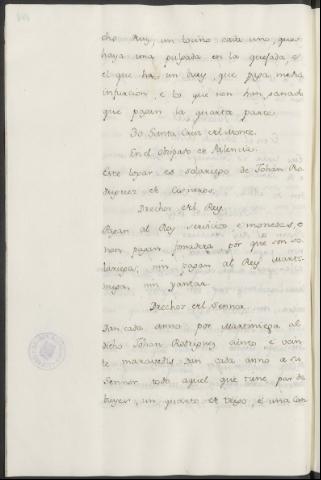 cho Rey, un tocino cada uno, que
haya una pulgada en la quejada, e
el que ha un buey, que paga media
infurcion, e los que non han ganado
que pagan la quarta parte.
30 Santa Cruz del Monte.
En el obispado de Palencia.
Este logar es solariego de Johan Ro
driguez de Cisneros.
Derechos del Rey.
Pagan al Rey servicios e monedas, e
non pagan fonsadera por que son so
lariegos, nin pagan al Rey marti
niega, nin yantar.
Derechos del Sennor.
Dan cada anno por Martiniega al
dicho Johan Rodriguez ciento e vein
te maravedis, dan cada anno a su
Sennor todo aquel que tiene par de
bueyes, un quarto de trigo, e una